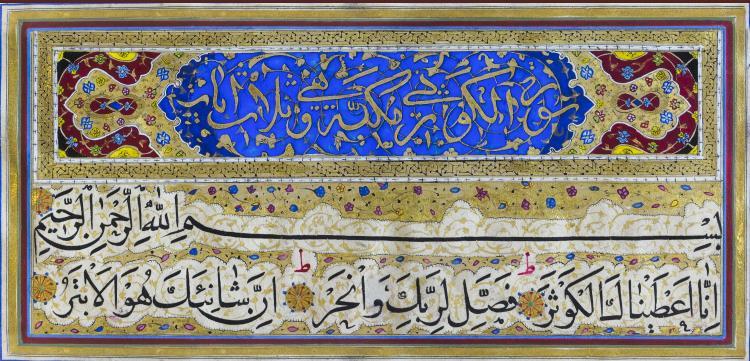 سورة الكوثر مكية وهي ثلاث آيات
بِسْمِ اللّٰهِ الرَّحْمٰنِ الرَّحِيمِ
اِنَّٓا اَعْطَيْنَاكَ الْكَوْثَرَ ط فَصَلِّ لِرَبِّكَ وَانْحَرْ ط اِنَّ شَانِئَكَ هُوَ الْاَبْتَرُ